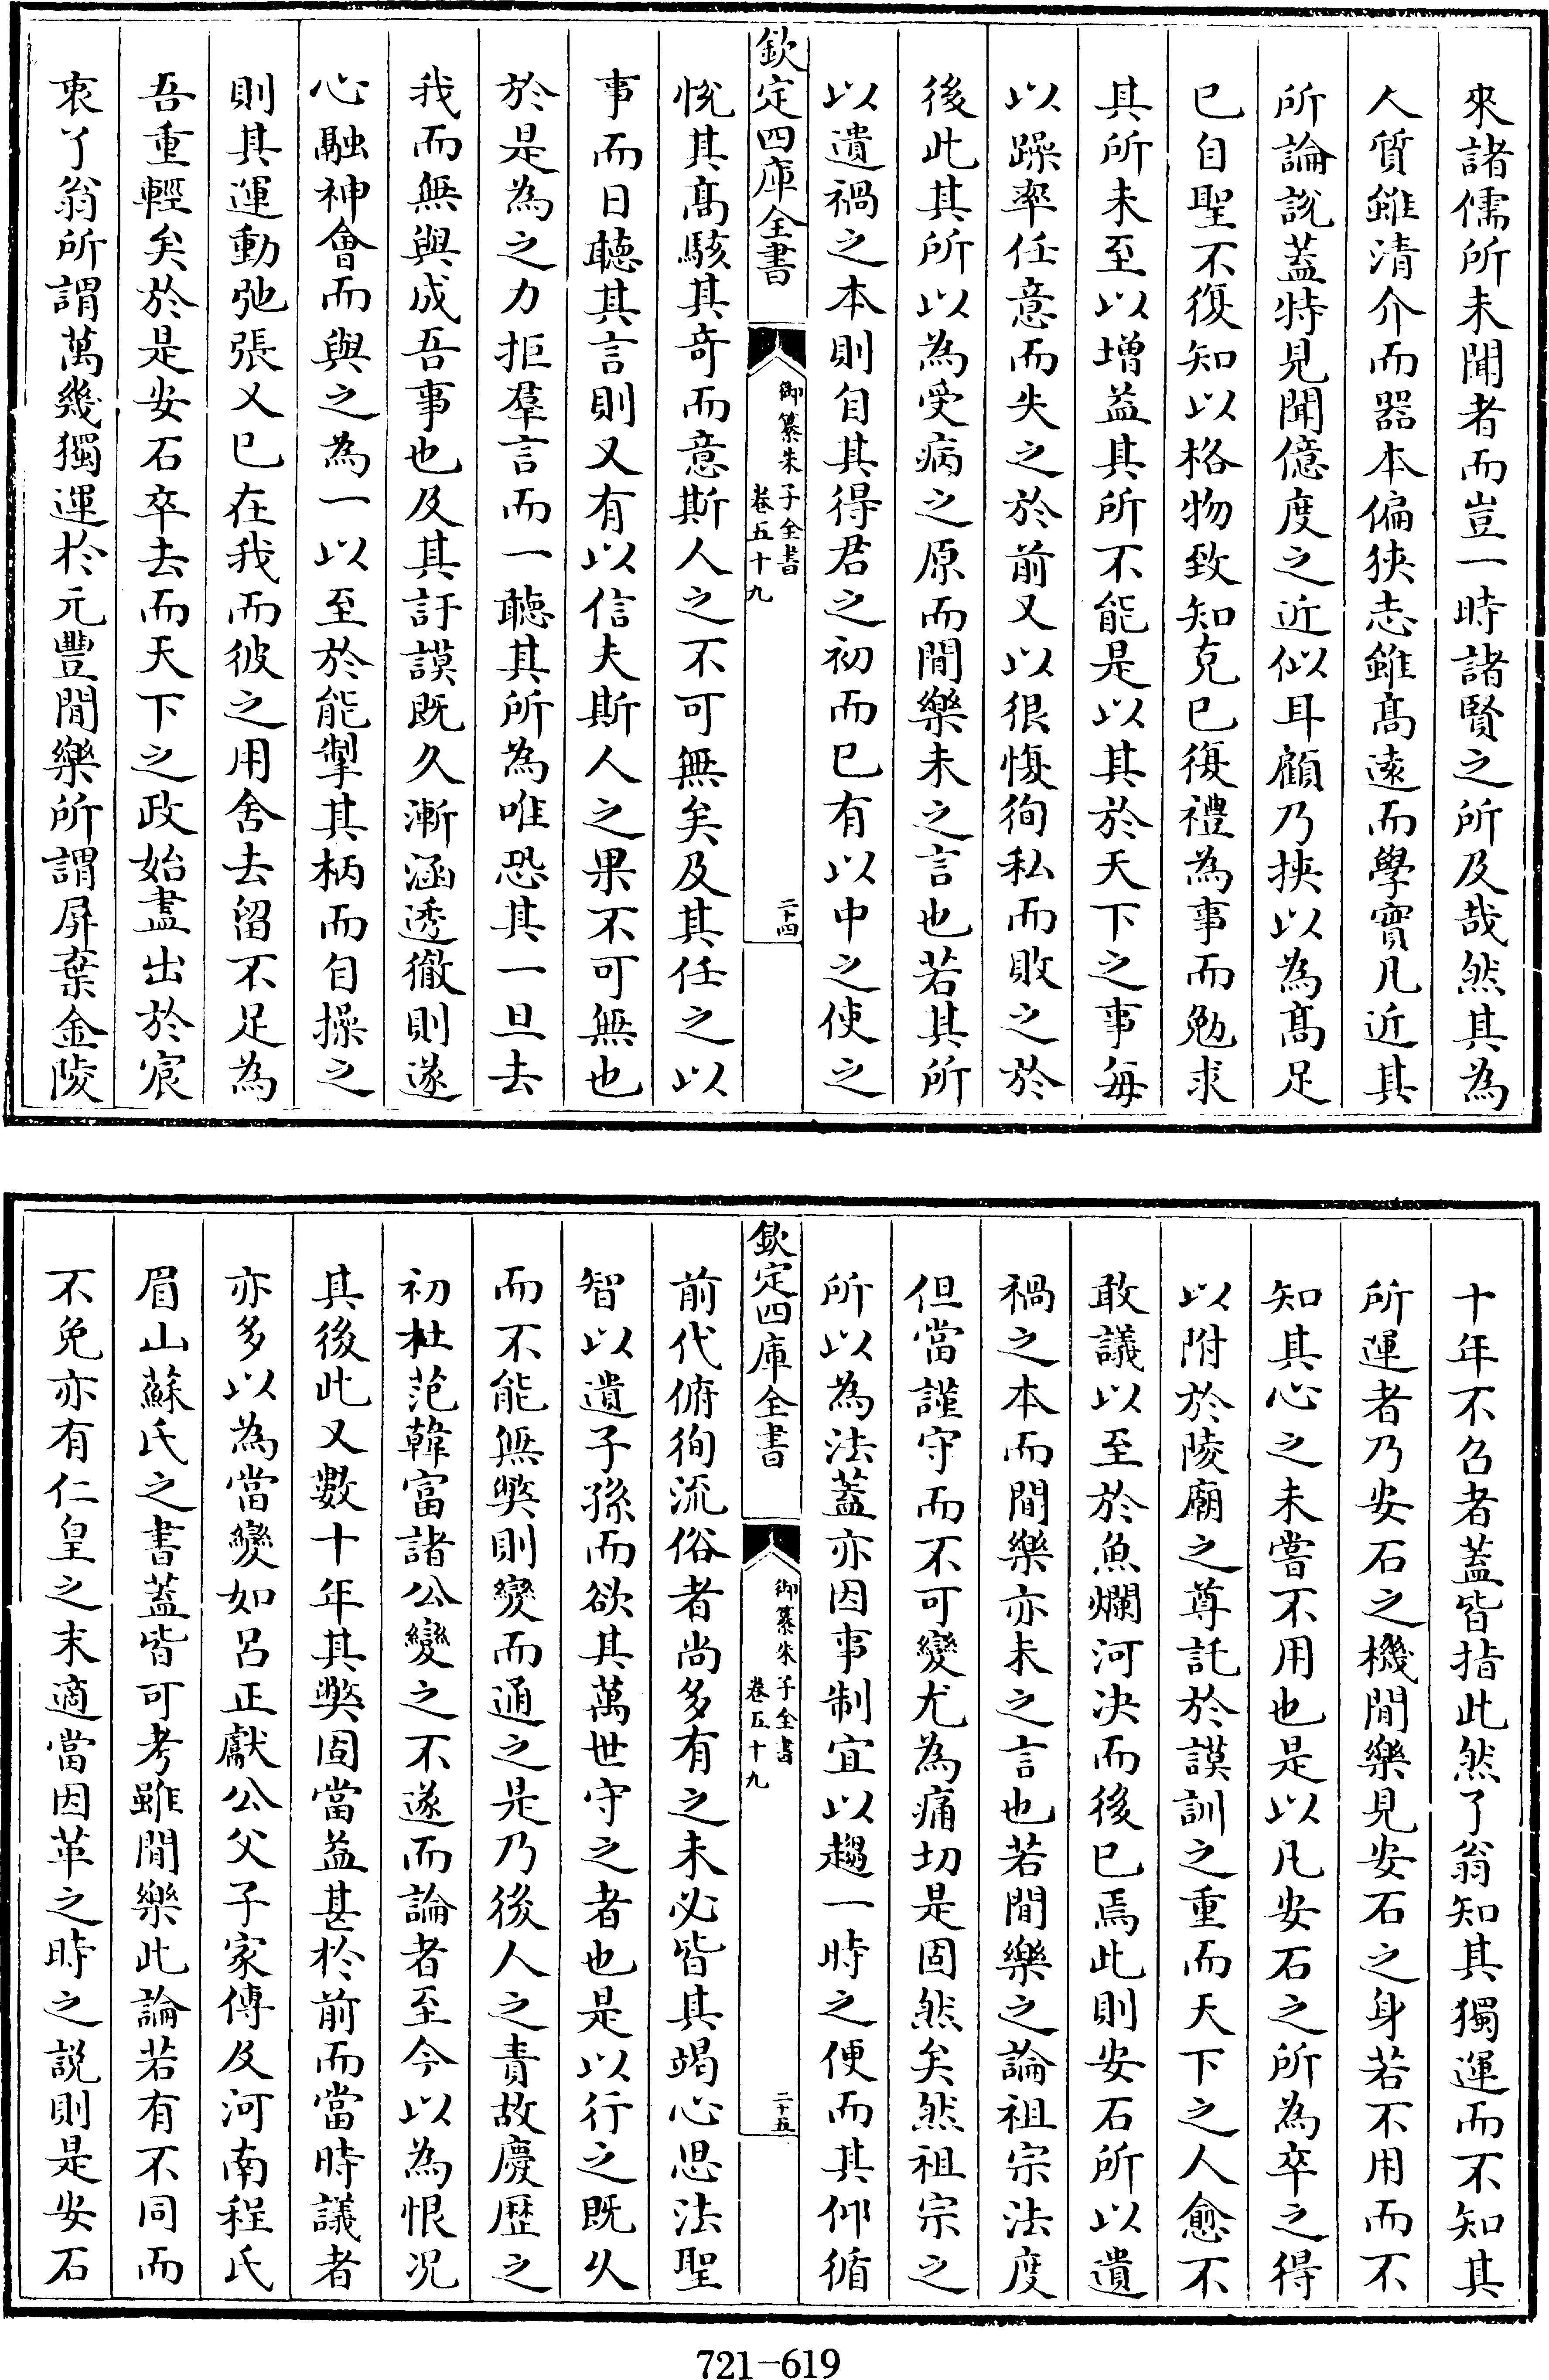 來諸儒所未聞者而豈一時諸賢之所及哉然其為
人質雖清介而器本偏狹志雖髙遠而學實凡近其
所論說蓋特見聞億度之近似耳顧乃挾以為髙足
已自聖不復知以格物致知克已復禮為事而勉求
其所未至以增益其所不能是以其於天下之事每
以躁率任意而失之於前又以很愎徇私而敗之於
後此其所以為受病之原而閒樂未之言也若其所
以遺禍之本則自其得君之初而已有以中之使之
欽定四庫全書
御纂朱子全書
卷五十九
二十四
悅其髙駭其奇而意斯人之不可無矣及其任之以
事而日聽其言則又有以信夫斯人之果不可無也
於是為之力拒羣言而一聽其所為唯恐其一旦去
我而無與成吾事也及其訏謨既久漸涵透徹則遂
心融神會而與之為一以至於能掣其柄而自操之
則其運動弛張又已在我而彼之用舍去留不足為
吾重輕矣於是安石卒去而天下之政始盡出於宸
衷了翁所謂萬幾獨運於元豐閒樂所謂屏棄金陵
十年不召者蓋皆指此然了翁知其獨運而不知其
所運者乃安石之機閒樂見安石之身若不用而不
知其心之未嘗不用也是以凡安石之所為卒之得
以附於陵廟之尊託於謨訓之重而天下之人愈不
敢議以至於魚爛河决而後已焉此則安石所以遺
禍之本而閒樂亦未之言也若閒樂之論祖宗法度
但當謹守而不可變尤為痛切是固然矣然祖宗之
所以為法蓋亦因事制宜以趨一時之便而其仰循
欽定四庫全書
御纂朱子全書
卷五十九
二十五
前代俯徇流俗者尚多有之未必皆其竭心思法聖
智以遺子孫而欲其萬世守之者也是以行之既久
而不能無獘則變而通之是乃後人之責故慶歴之
初杜范韓富諸公變之不遂而論者至今以為恨况
其後此又數十年其獘固當益甚於前而當時議者
亦多以為當變如呂正獻公父子家傳及河南程氏
眉山蘇氏之書蓋皆可考雖閒樂此論若有不同而
不免亦有仁皇之末適當因革之時之説則是安石
721-619